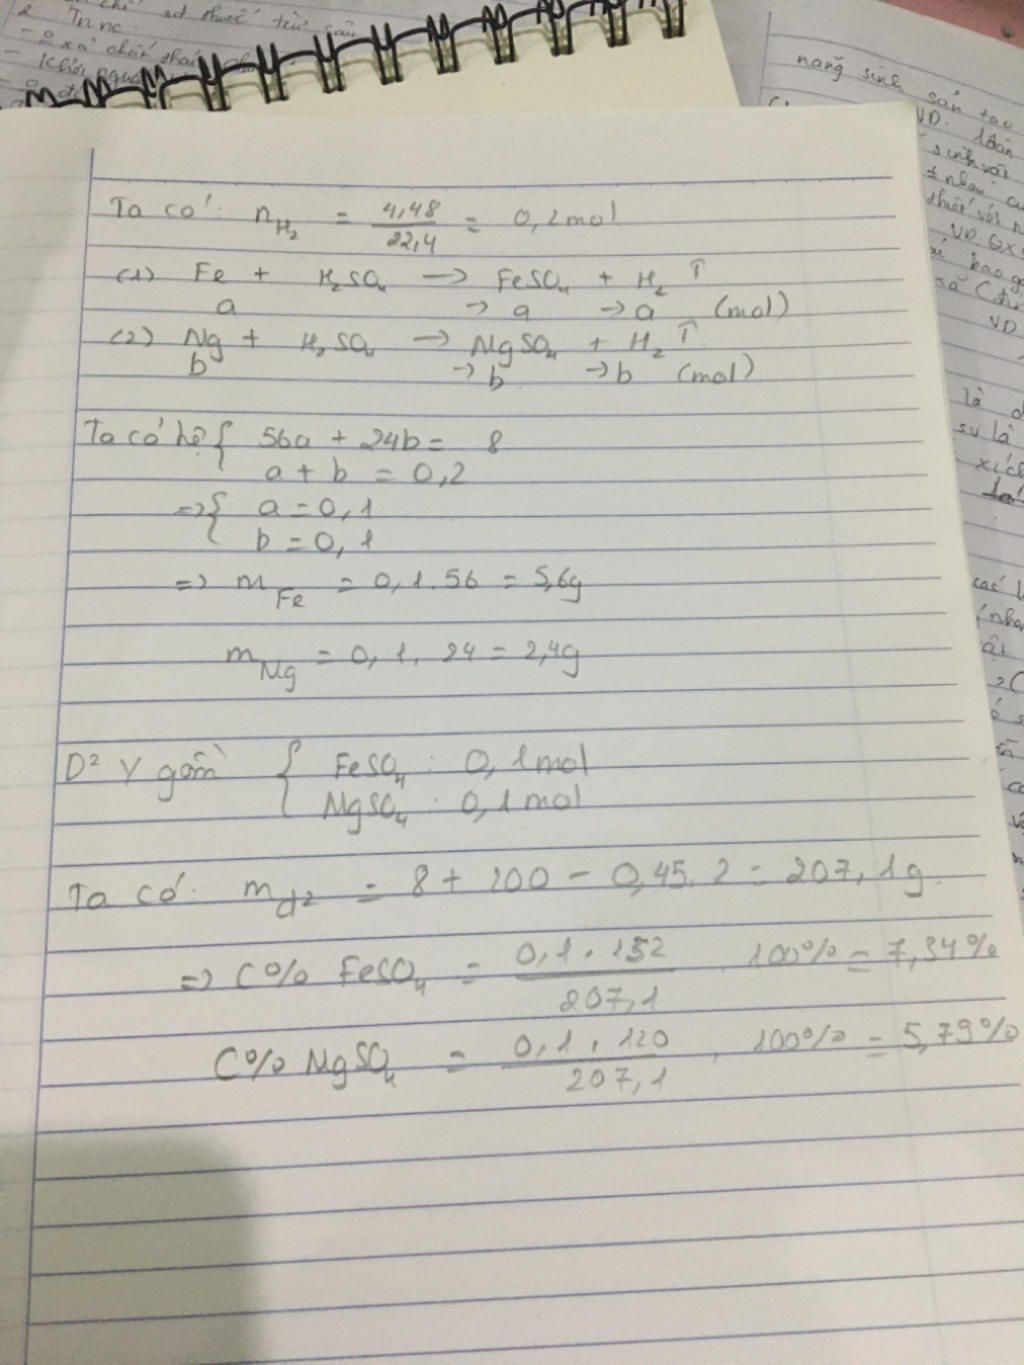 Ta có: nH₂ = 4,48/22,4 = 0,2 mol
(1) Fe + H₂SO₄ → FeSO₄ + H₂ ↑
a → a → a (mol)
(2) Mg + H₂SO₄ → MgSO₄ + H₂ ↑
b → b → b (mol)
Ta có hệ { 56a + 24b = 8
a + b = 0,2
=> { a = 0,1
b = 0,1
=> mFe = 0,1.56 = 5,6g
mMg = 0,1.24 = 2,4g
D² Y gồm { FeSO₄ : 0,1 mol
MgSO₄ : 0,1 mol
Ta có: m d² = 8 + 200 - 0,45.2 = 207,1g.
=> C% FeSO₄ = 0,1.152/207,1 . 100% = 7,34%
C% MgSO₄ = 0,1.120/207,1 . 100% = 5,79%
năng sinh sản tạo
VD.
VD.
VD
là
sư là
các